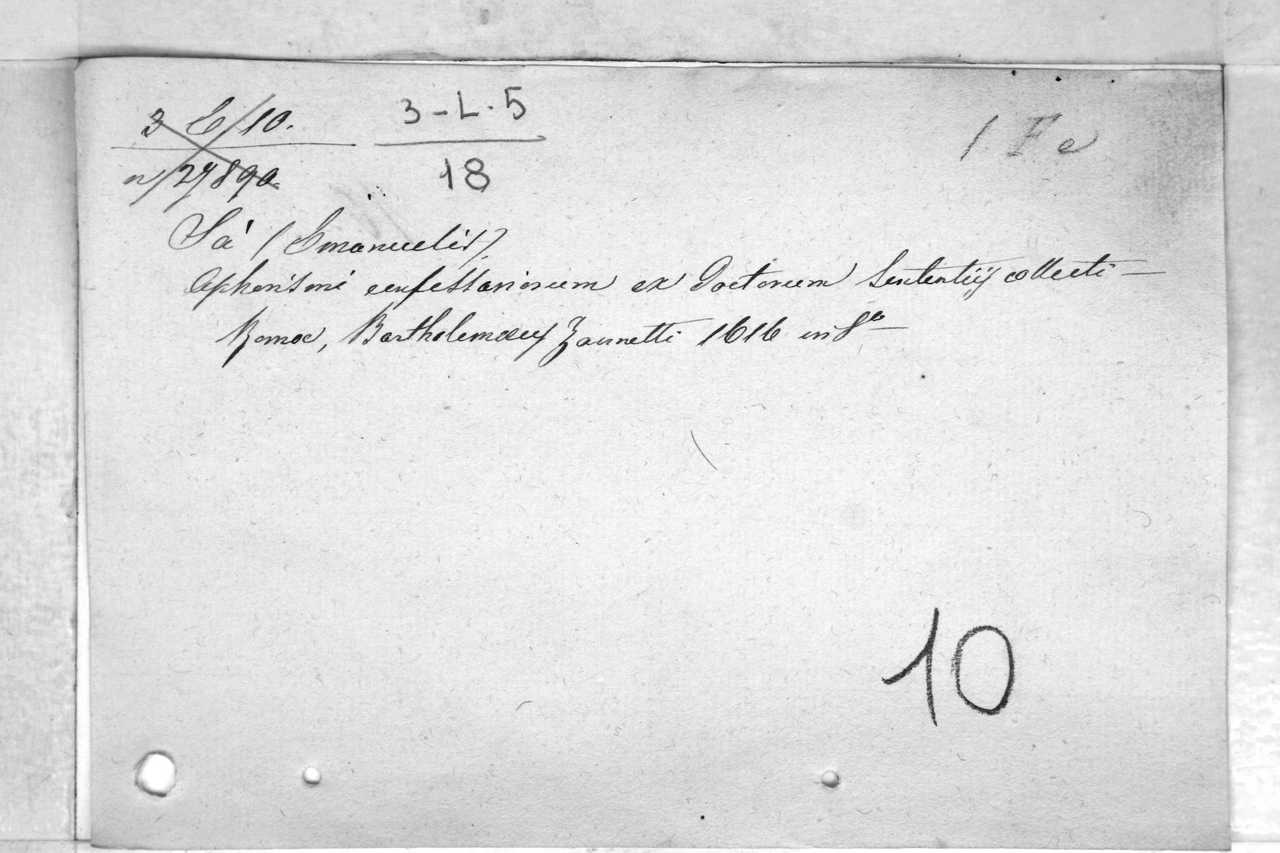 3 E/10. 3-L-5 1 Fe
n/27890. 18
Sá (Emanuelis)
Aphorismi confessariorum ex Doctorum Sententijs collecti —
Romae, Bartholemaeus Zannetti 1616 in 8º —
10